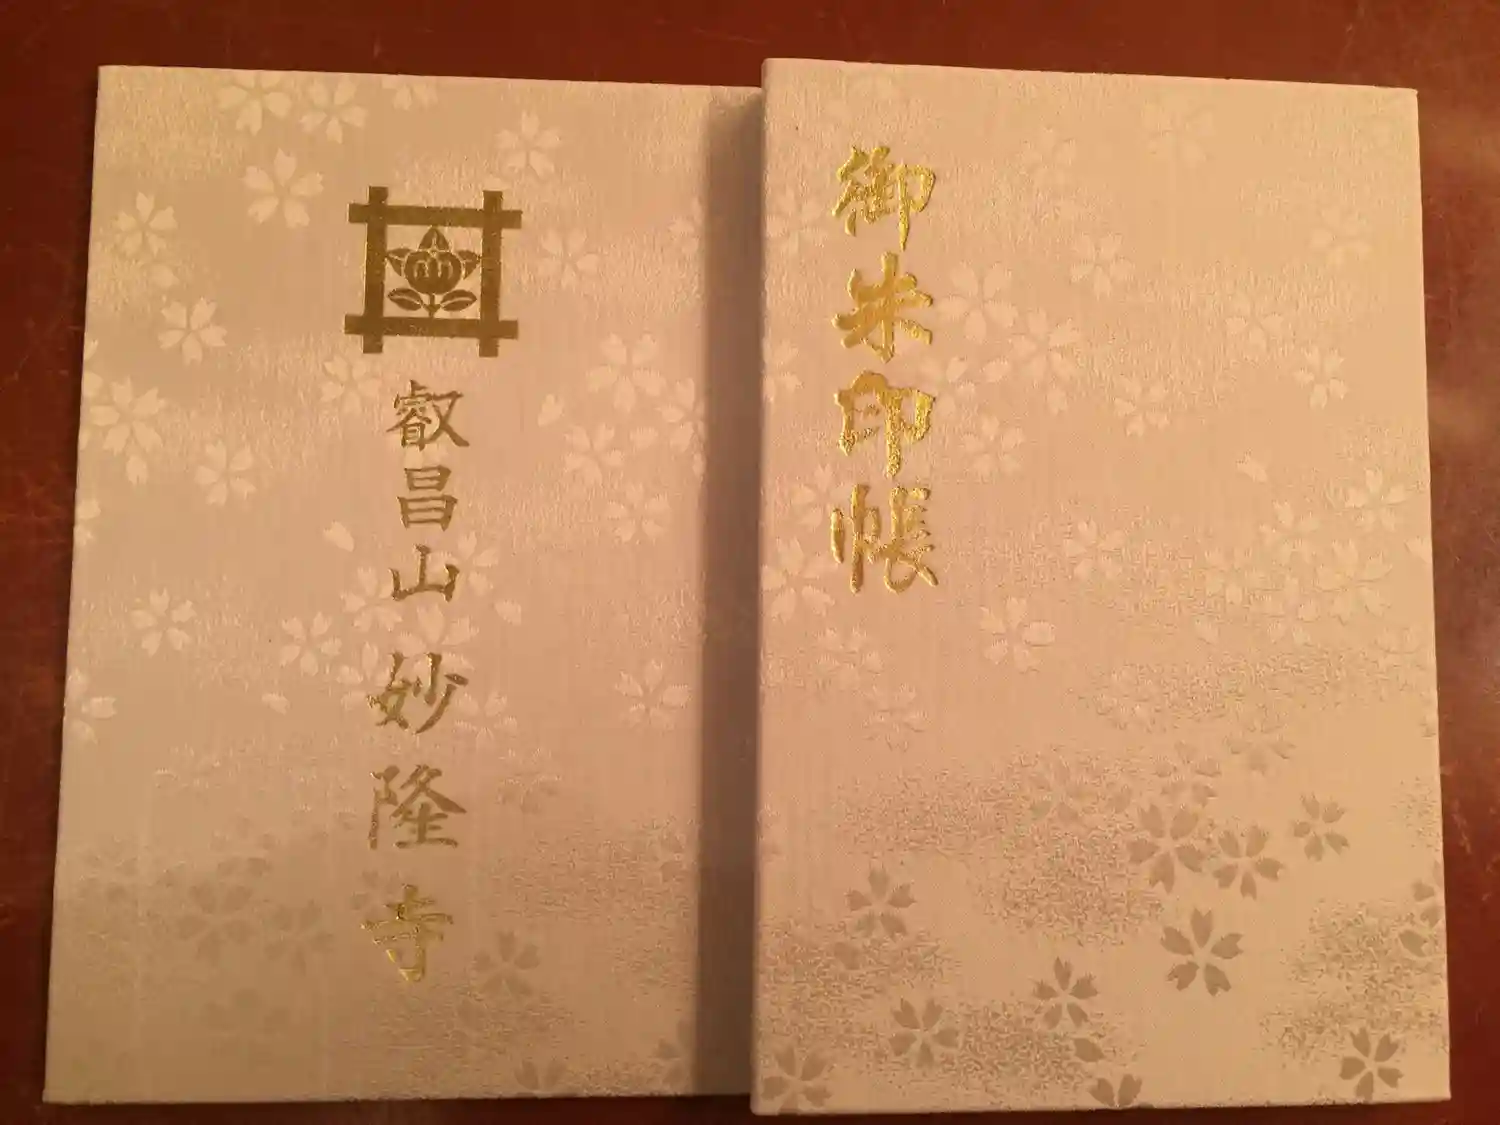 御朱印帳
叡昌山妙隆寺